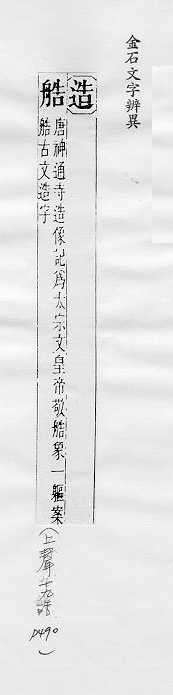 金石文字辨異
造
艁
唐神通寺造像記爲太宗文皇帝敬艁象一軀案
艁古文造字
(上聲十九皓
p490)